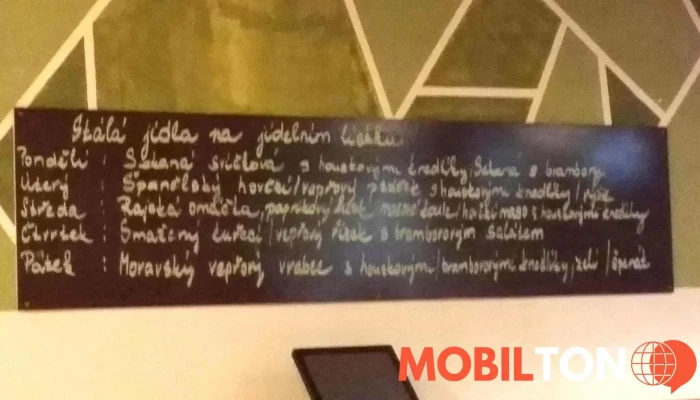 Stálá jídla na jídelním lístku
Pondělí : Sekaná svíčková s houskovými knedlíky, Sekaná s brambory
Úterý : Španělský hovězí/vepřový ptáček s houskovými knedlíky/rýže
Středa : Rajská omáčka, paprikový lusk hovězí maso s houskovými knedlíky
Čtvrtek : Smažený kuřecí/vepřový řízek s bramborovým salátem
Pátek : Moravský vepřový vrabec s houskovými/bramborovými knedlíky, zelí/špenát
MOBILTON